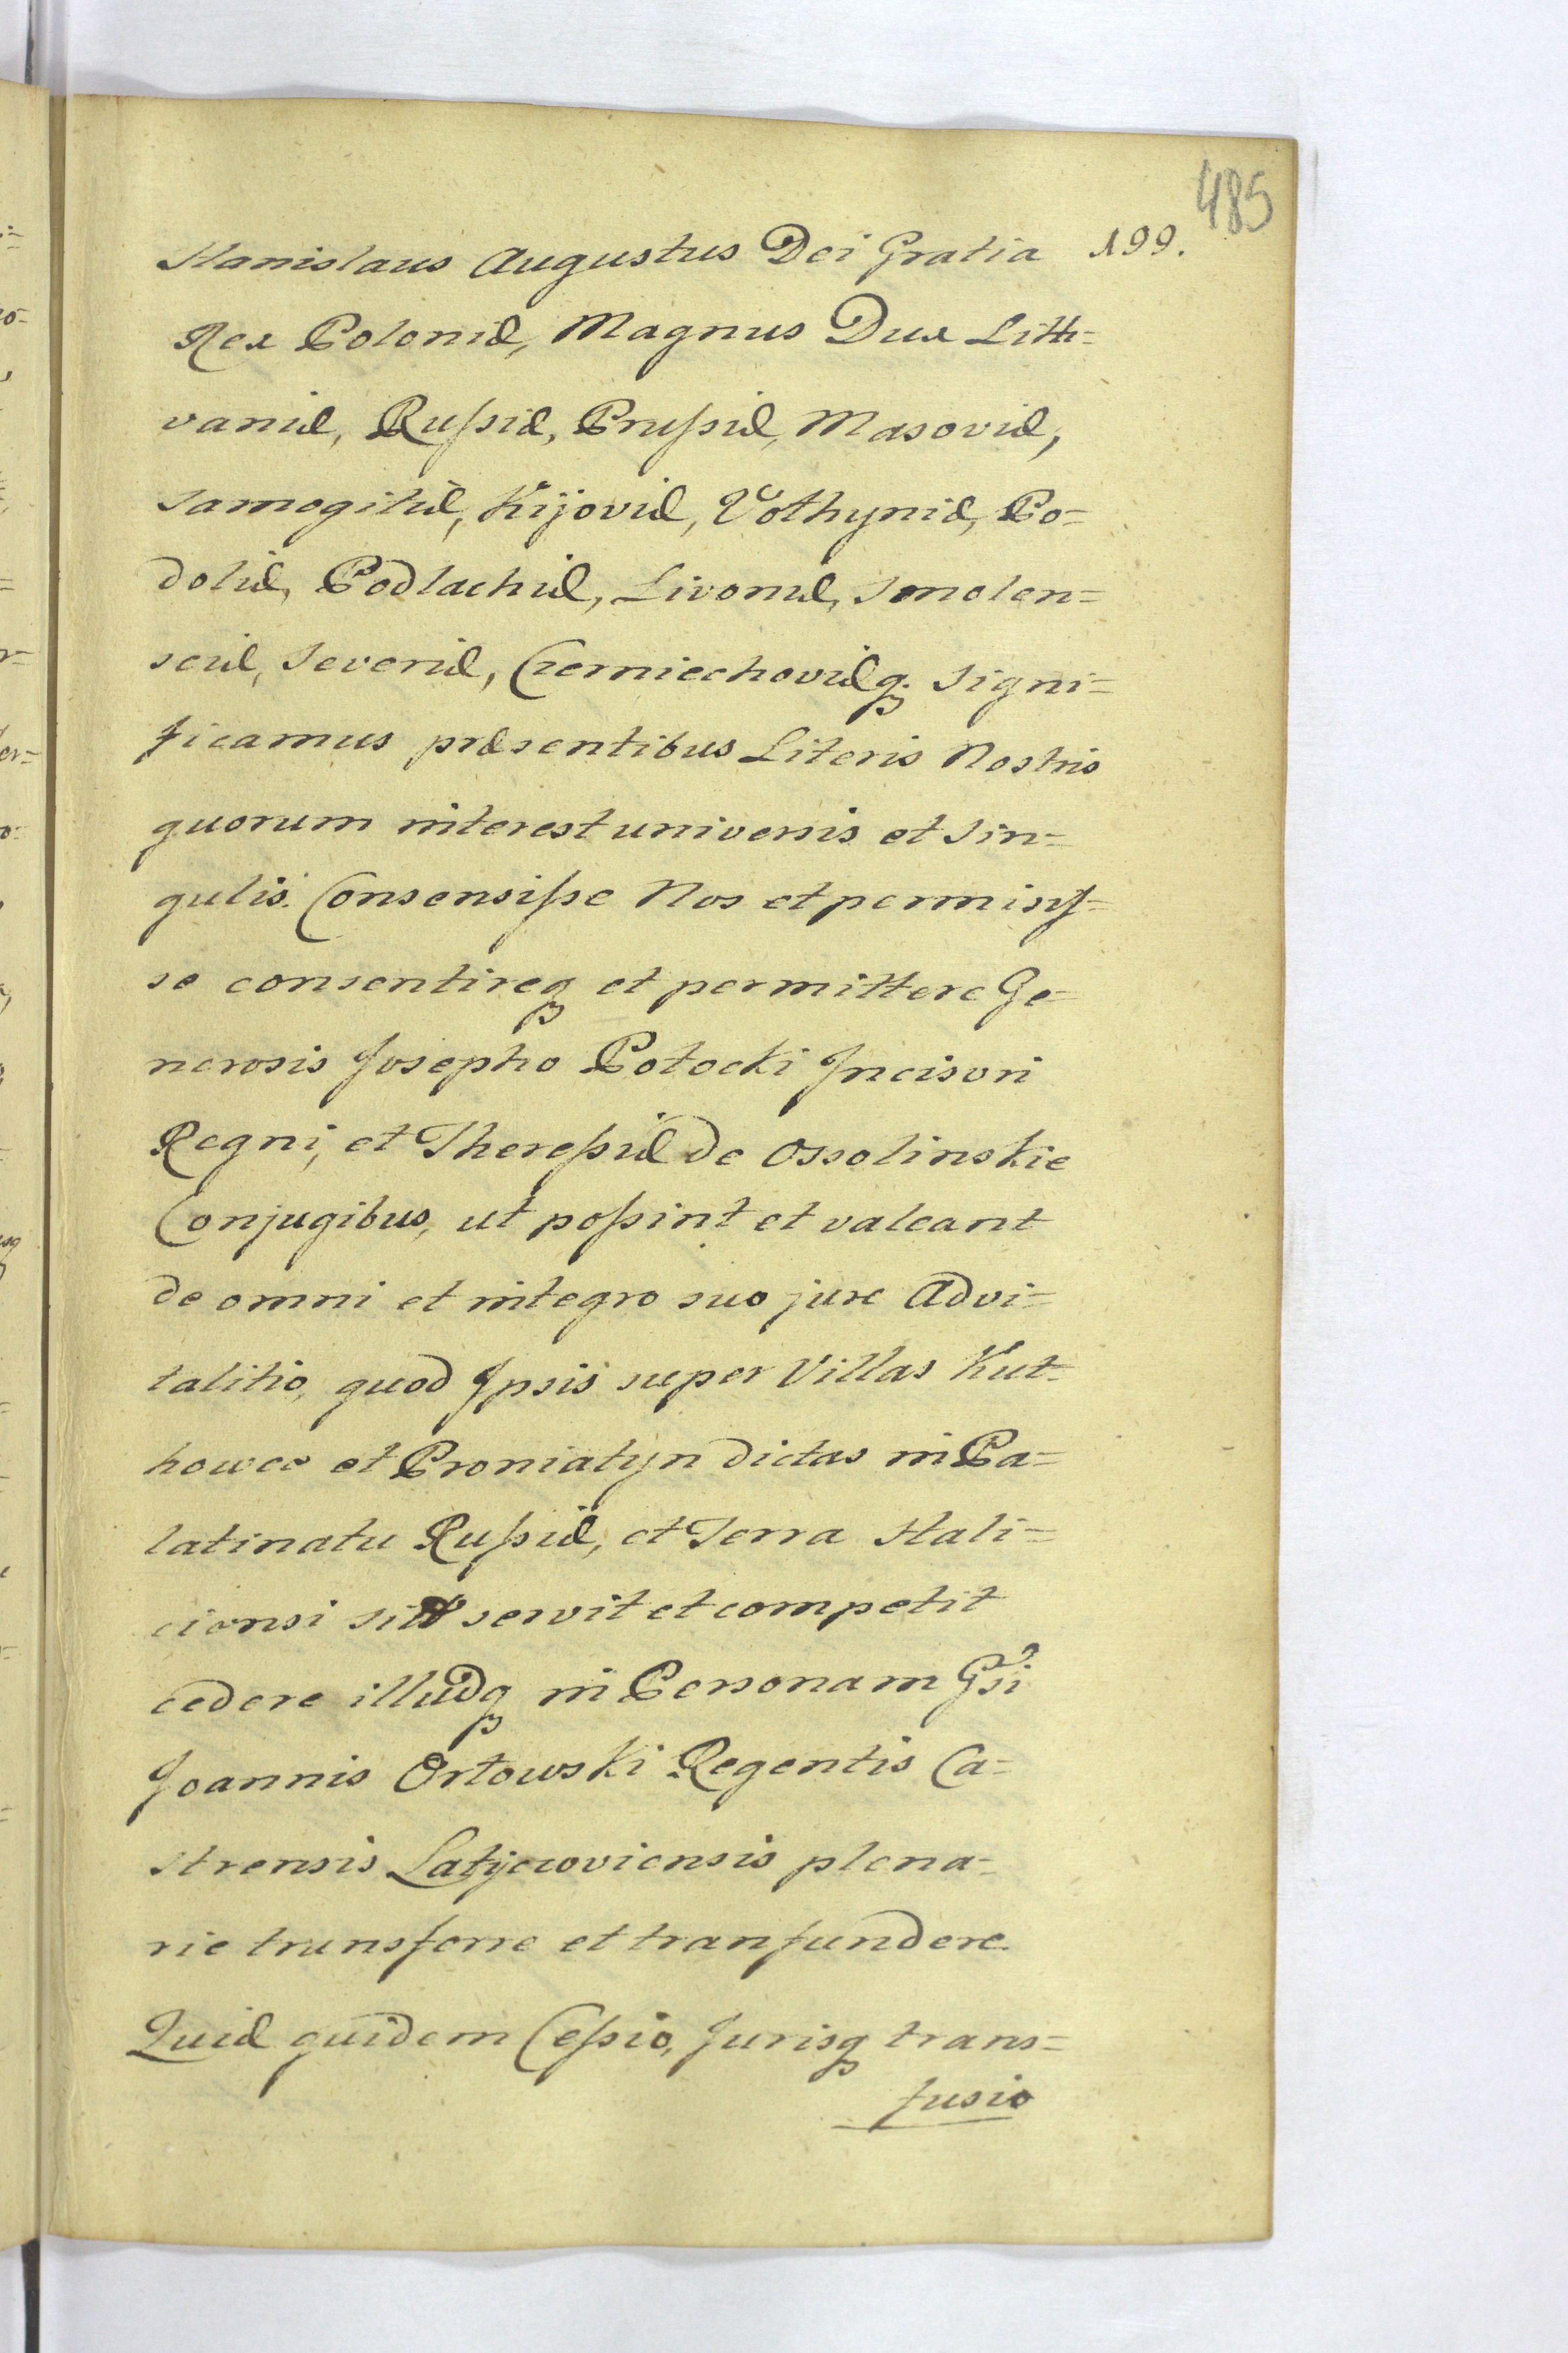 485
Stanislaus Augustus Dei Gratia 199.
Rex Poloniæ, Magnus Dux Litth=
vaniæ, Russiæ, Prussiæ, Masoviæ,
Samogitiæ, Kijoviæ, Volhyniæ, Po=
doliæ, Podlachiæ, Livoniæ, Smolen=
sciæ, Severiæ, Czerniechoviæq; Signi=
ficamus præsentibus Literis Nostris
quorum interest universis et sin=
gulis. Consensisse Nos et permisis=
se consentireq; et permittere Ge=
nerosis Josepho Potocki Incisori
Regni, et Theressiæ de Ossolinskie
Conjugibus, ut possint et valeant
de omni et integro suo jure Advi=
talitio, quod Ipsis super Villas Kut=
howce et Proniatyn dictas in Pa=
latinatu Russiæ, et Terra Hali=
ciensi servit et competit
cedere illudq; in Personam Gsi
Joannis Orłowski Regentis Ca=
strensis Latyczoviensis plena=
rie transferre et transfundere.
Quæ quidem Cessio, Jurisq; trans=
fusio